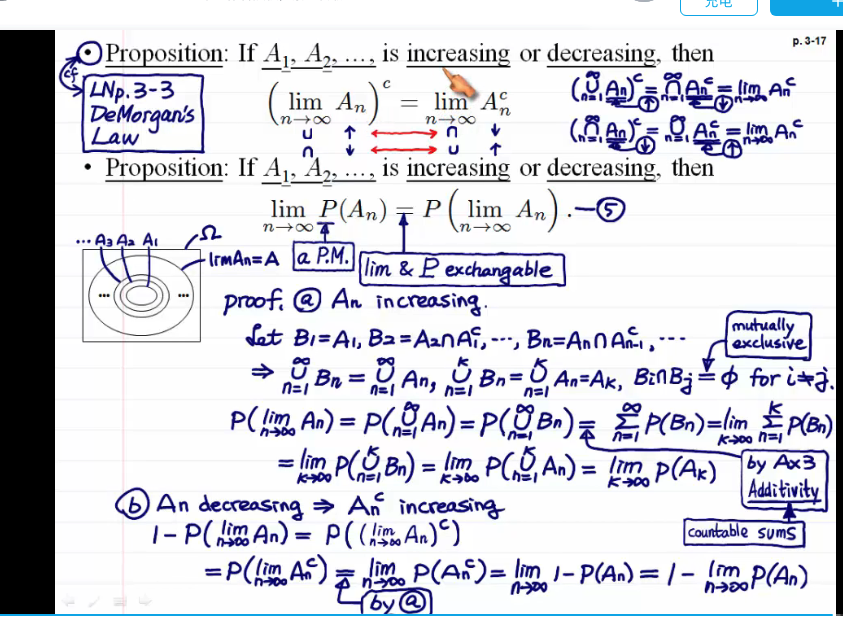 充电
p. 3-17
• Proposition: If A₁, A₂, …, is increasing or decreasing, then
cf
LNp. 3-3
DeMorgan's
Law
(lim_{n→∞} Aₙ)ᶜ = lim_{n→∞} Aₙᶜ
∪ ↑ ↔ ∩ ↓
∩ ↓ ↔ ∪ ↑
(∪_{n=1}^∞ Aₙ)ᶜ = ∩_{n=1}^∞ Aₙᶜ = lim_{n→∞} Aₙᶜ
↑ ↓
(∩_{n=1}^∞ Aₙ)ᶜ = ∪_{n=1}^∞ Aₙᶜ = lim_{n→∞} Aₙᶜ
↓ ↑
• Proposition: If A₁, A₂, …, is increasing or decreasing, then
lim_{n→∞} P(Aₙ) = P(lim_{n→∞} Aₙ). —⑤
a P.M.
lim & P exchangable
… A₃ A₂ A₁ Ω
lim Aₙ = A
… …
proof. ⓐ Aₙ increasing.
Let B₁=A₁, B₂=A₂∩A₁ᶜ, …, Bₙ=Aₙ∩Aₙ₋₁ᶜ, …
mutually
exclusive
⇒ ∪_{n=1}^∞ Bₙ = ∪_{n=1}^∞ Aₙ, ∪_{n=1}^k Bₙ = ∪_{n=1}^k Aₙ = A_k, Bᵢ∩Bⱼ = ϕ for i≠j.
P(lim_{n→∞} Aₙ) = P(∪_{n=1}^∞ Aₙ) = P(∪_{n=1}^∞ Bₙ) = Σ_{n=1}^∞ P(Bₙ) = lim_{k→∞} Σ_{n=1}^k P(Bₙ)
= lim_{k→∞} P(∪_{n=1}^k Bₙ) = lim_{k→∞} P(∪_{n=1}^k Aₙ) = lim_{k→∞} P(A_k)
by Ax3
Additivity
countable sums
ⓑ Aₙ decreasing ⇒ Aₙᶜ increasing
1 − P(lim_{n→∞} Aₙ) = P((lim_{n→∞} Aₙ)ᶜ)
= P(lim_{n→∞} Aₙᶜ) = lim_{n→∞} P(Aₙᶜ) = lim_{n→∞} 1−P(Aₙ) = 1 − lim_{n→∞} P(Aₙ)
by ⓐ